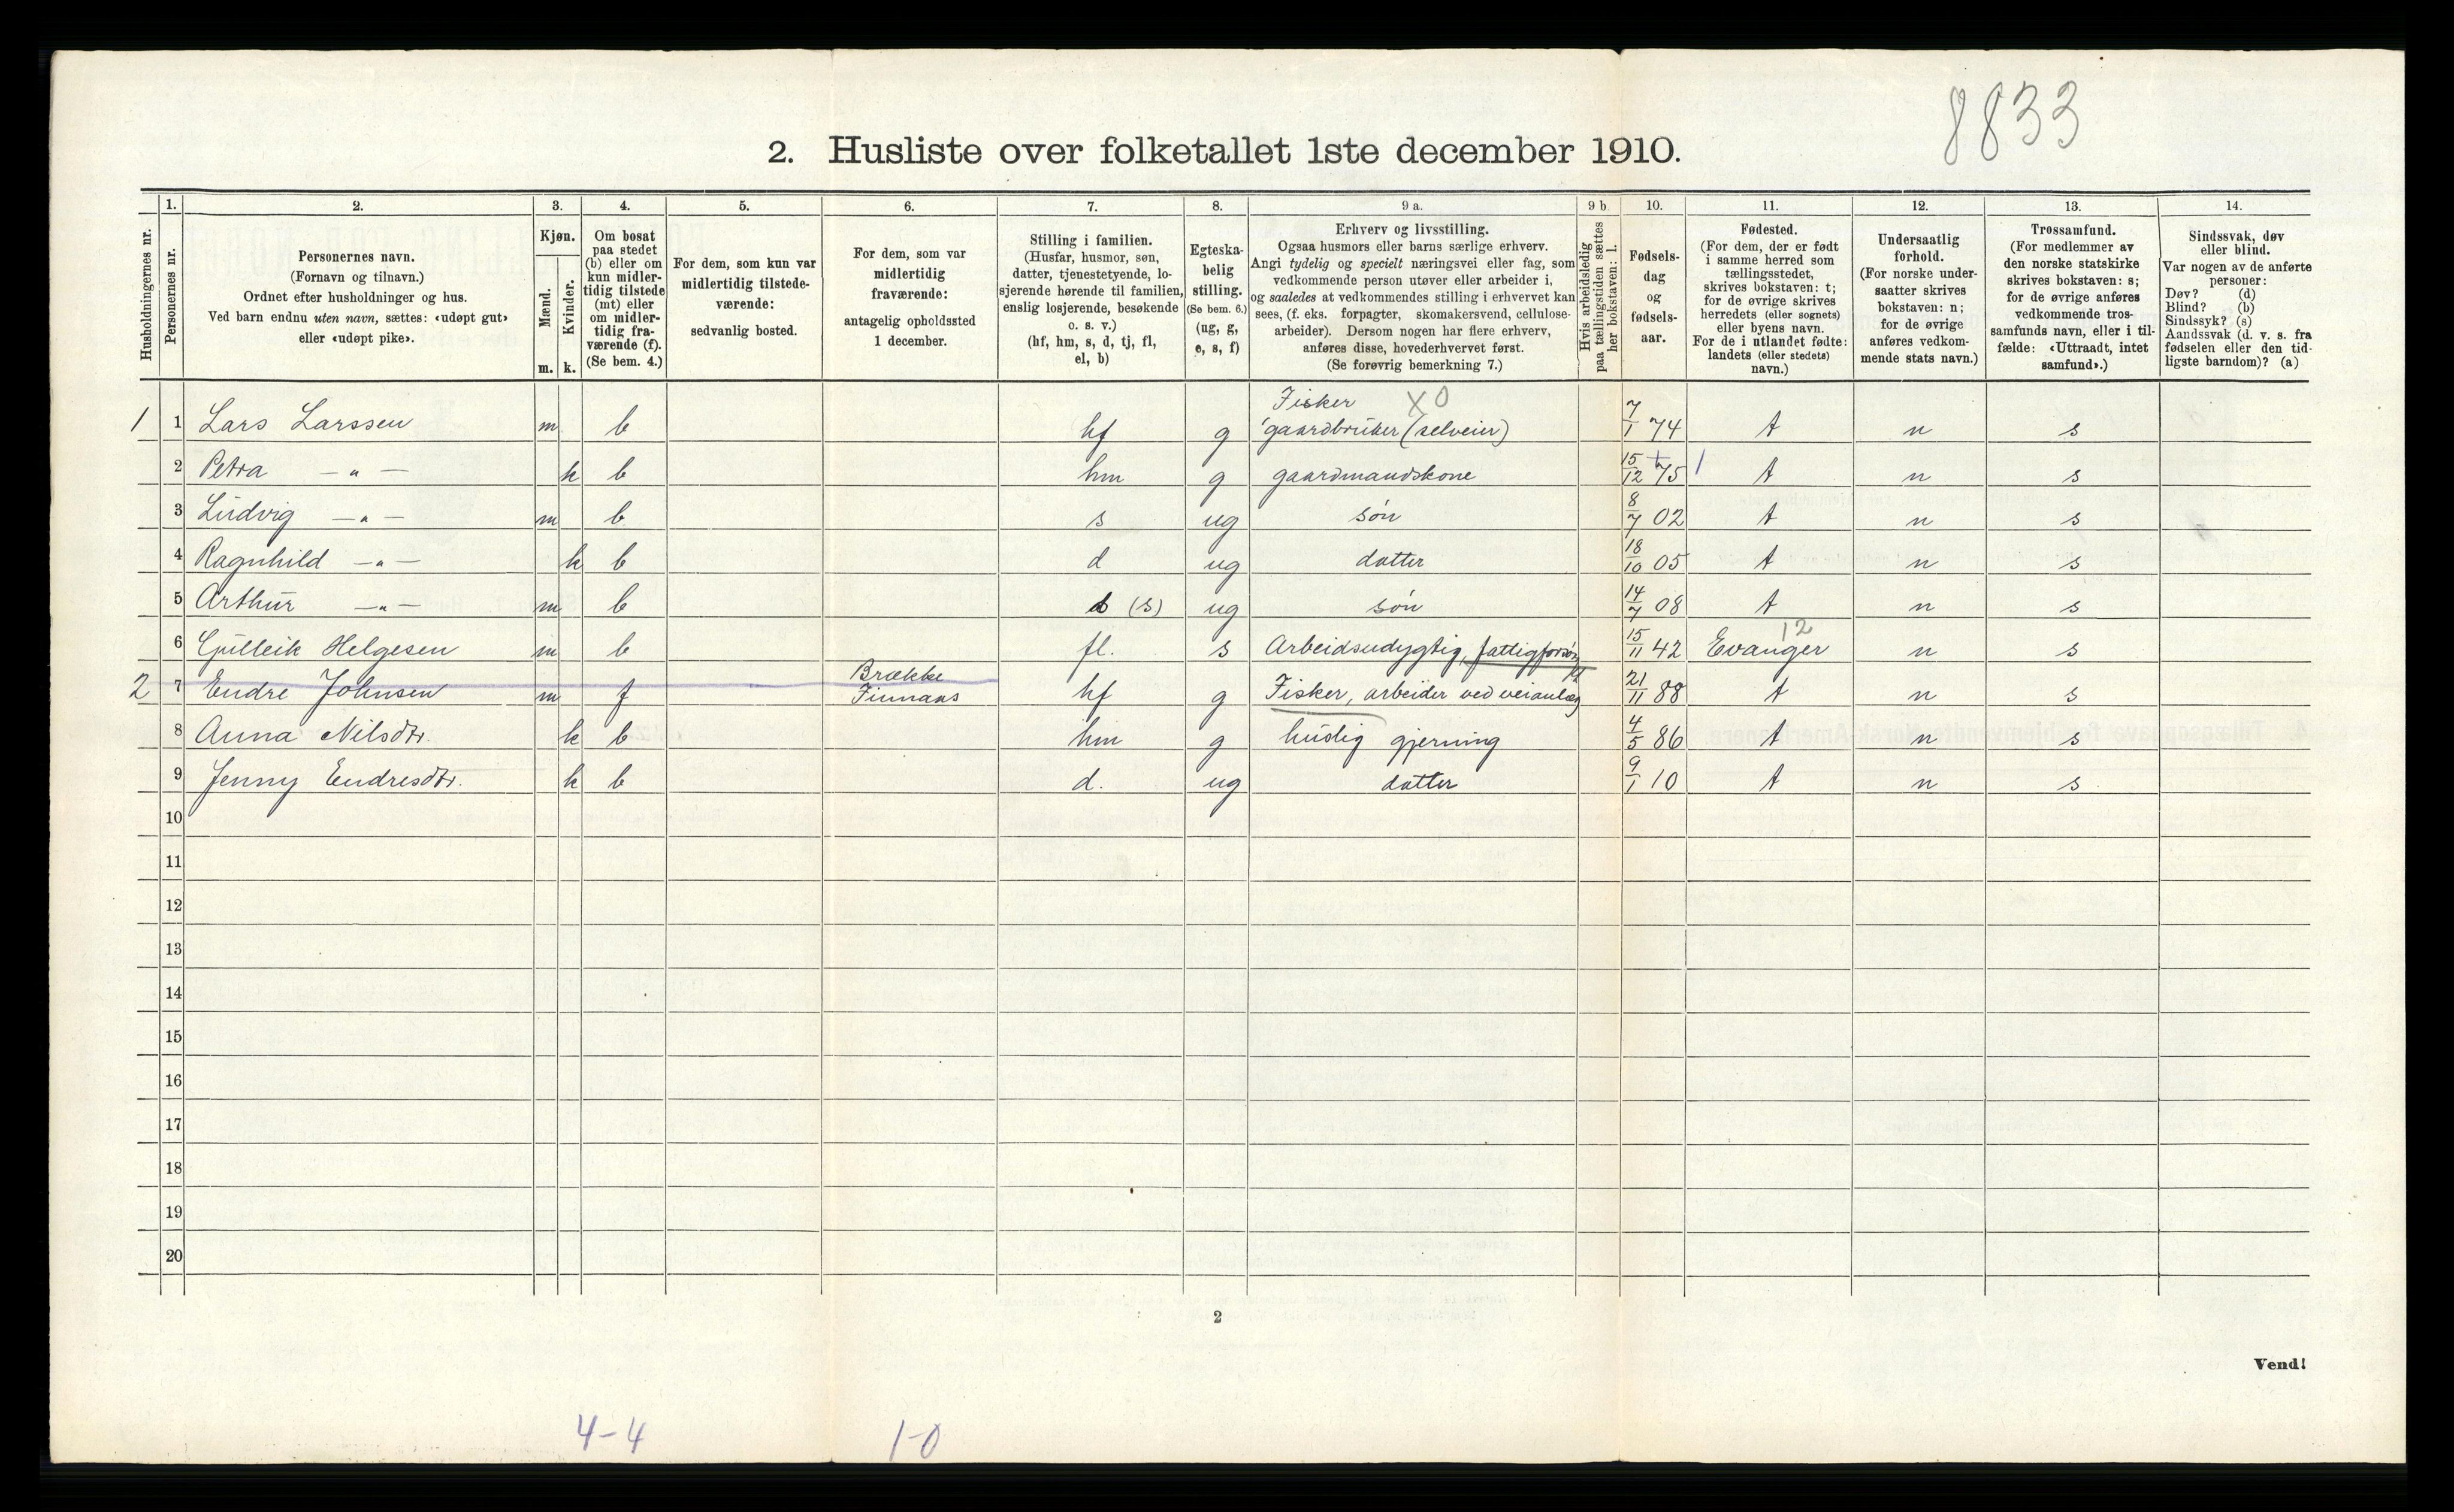 8833
2. Husliste over folketallet 1ste december 1910.
Husholdningernes nr.
1.
Personernes nr.
2.
Personernes navn.
(Fornavn og tilnavn.)
Ordnet efter husholdninger og hus.
Ved barn endnu uten navn, sættes: «udøpt gut»
eller «udøpt pike».
3.
Kjøn.
Mænd.
Kvinder.
m. k.
4.
Om bosat
paa stedet
(b) eller om
kun midler-
tidig tilstede
(mt) eller
om midler-
tidig fra-
værende (f).
(Se bem. 4.)
5.
For dem, som kun var
midlertidig tilstede-
værende:
sedvanlig bosted.
6.
For dem, som var
midlertidig
fraværende:
antagelig opholdssted
1 december.
7.
Stilling i familien.
(Husfar, husmor, søn,
datter, tjenestetyende, lo-
sjerende hørende til familien,
enslig losjerende, besøkende
o. s. v.)
(hf, hm, s, d, tj, fl,
el, b)
8.
Egteska-
belig
stilling.
(Se bem. 6.)
(ug, g,
e, s, f)
9 a.
Erhverv og livsstilling.
Ogsaa husmors eller barns særlige erhverv.
Angi tydelig og specielt næringsvei eller fag, som
vedkommende person utøver eller arbeider i,
og saaledes at vedkommendes stilling i erhvervet kan
sees, (f. eks. forpagter, skomakersvend, cellulose-
arbeider). Dersom nogen har flere erhverv,
anføres disse, hovederhvervet først.
(Se forøvrig bemerkning 7.)
9 b.
Hvis arbeidsledig
paa tællingstiden sættes
her bokstaven: l.
10.
Fødsels-
dag
og
fødsels-
aar.
11.
Fødested.
(For dem, der er født
i samme herred som
tællingsstedet,
skrives bokstaven: t;
for de øvrige skrives
herredets (eller sognets)
eller byens navn.
For de i utlandet fødte:
landets (eller stedets)
navn.)
12.
Undersaatlig
forhold.
(For norske under-
saatter skrives
bokstaven: n;
for de øvrige
anføres vedkom-
mende stats navn.)
13.
Trossamfund.
(For medlemmer av
den norske statskirke
skrives bokstaven: s;
for de øvrige anføres
vedkommende tros-
samfunds navn, eller i til-
fælde: «Uttraadt, intet
samfund».)
14.
Sindssvak, døv
eller blind.
Var nogen av de anførte
personer:
Døv? (d)
Blind? (b)
Sindssyk? (s)
Aandssvak (d. v. s. fra
fødselen eller den tid-
ligste barndom)? (a)
Fisker XO
1 1 Lars Larssen m b hf g gaardbruker (selveier) 7/1 74 t n s
2 Petra —"— k b hm g gaardmandskone 15/12 75 t n s
3 Ludvig —"— m b s ug søn 8/7 02 t n s
4 Ragnhild —"— k b d ug datter 18/10 05 t n s
5 Arthur —"— m b (s) ug søn 14/7 08 t n s
12
6 Gulleik Helgesen m b fl. s Arbeidsudygtig, fattigforsørg 15/11 42 Evanger n s
Brække
2 7 Endre Johnsen m f Finnaas hf g Fisker, arbeider ved veianlæg 21/11 88 t n s
8 Anna Nilsdtr. k b hm g huslig gjerning 4/5 86 t n s
9 Jenny Endresdtr. k b d. ug datter 9/1 10 t n s
10
11
12
13
14
15
16
17
18
19
20
2
Vend!
4-4 1-0